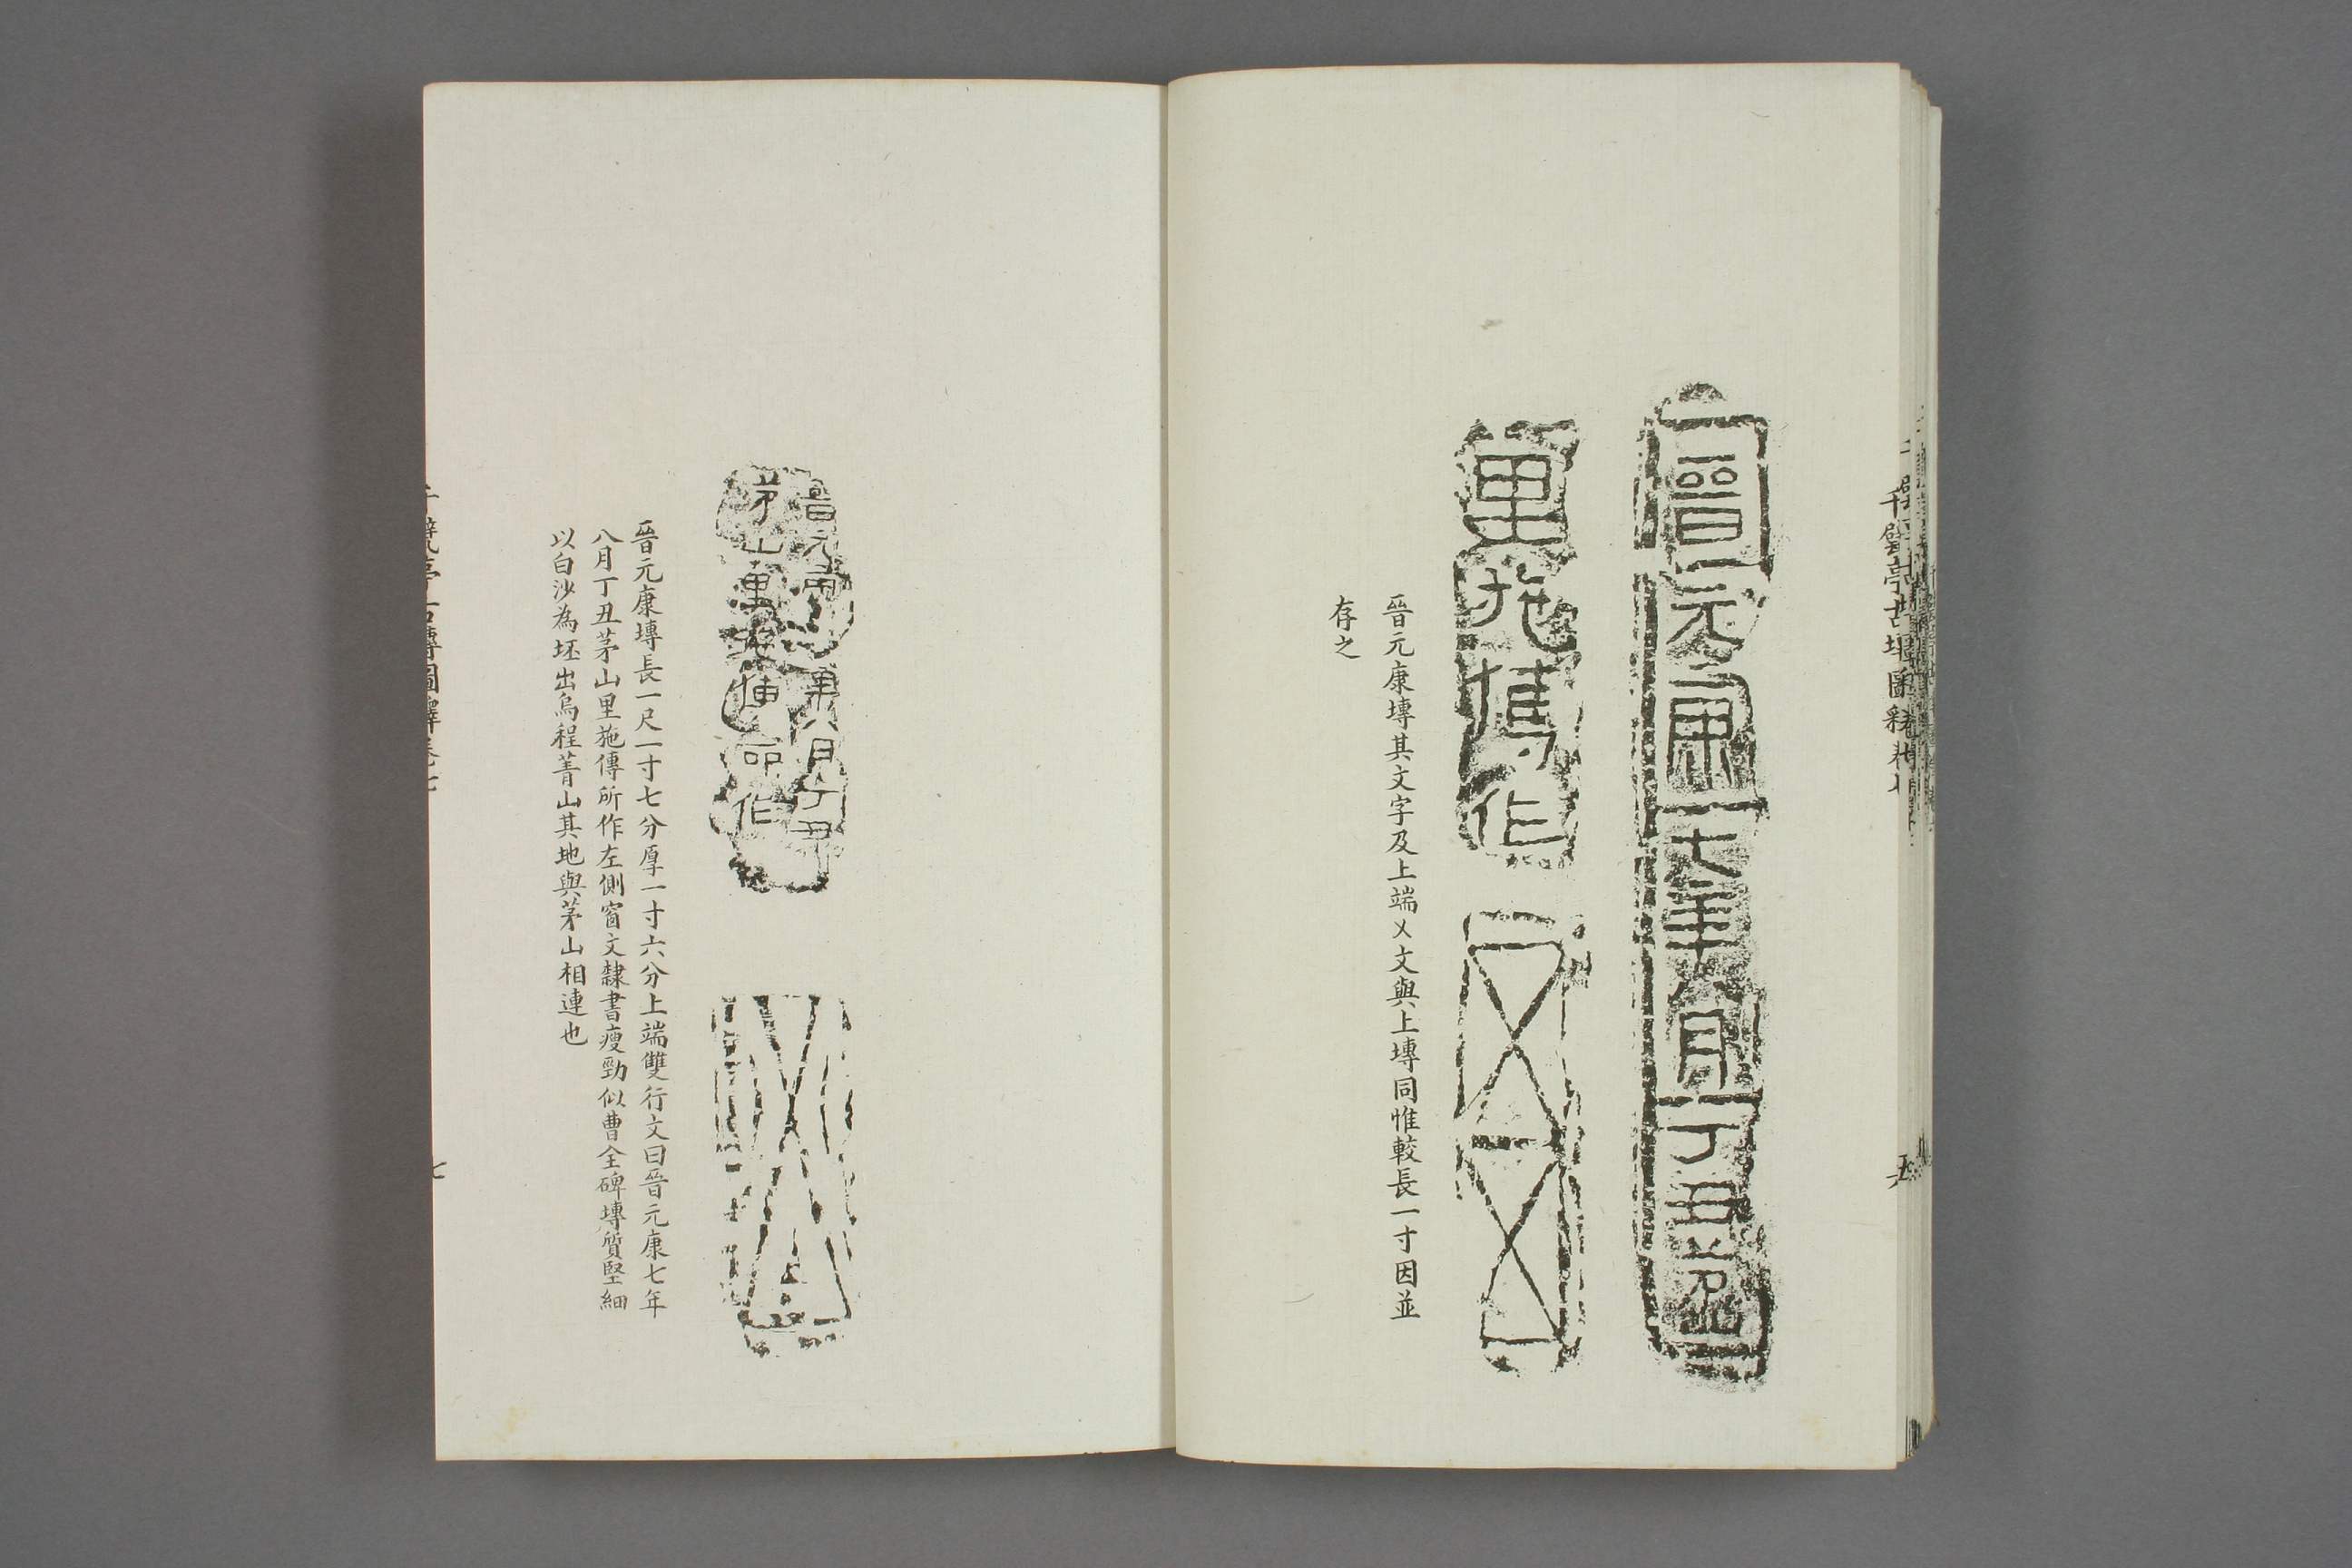 晉元康七年八月丁丑茅山
里施傳作
晉元康塼其文字及上端㐅文與上塼同惟較長一寸因並
存之
晉元康七年八月丁丑
茅山里施傳所作
晉元康塼長一尺一寸七分厚一寸六分上端雙行文曰晉元康七年
八月丁丑茅山里施傳所作左側窗文隸書瘦勁似曹全碑塼質堅細
以白沙為坯出烏程菁山其地與茅山相連也
七